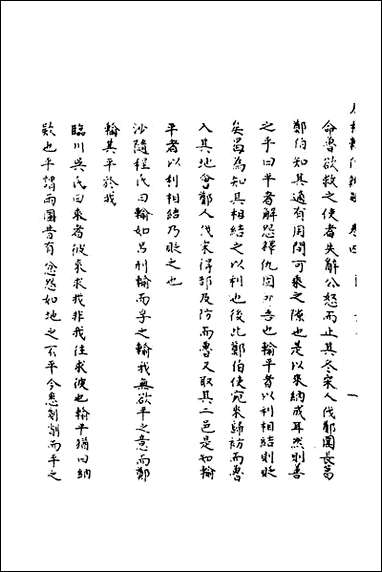 卷四
命魯欲救之使者失辭公怒而止其冬宋人伐鄭圍長葛
鄭伯知其適有用間可乘之隙也是以來納成耳然則善
之乎曰平者解怨釋仇固所善也輸平者以利相結則貶
矣曷為知其相結之以利也後此鄭伯使宛來歸祊而魯
入其地會鄭人伐宋得郜及防而魯又取其二邑是知輸
平者以利相結乃貶之也
沙隨程氏曰輸如呂刑輸而孚之輸我無欲平之意而鄭
輸其平於我
臨川吳氏曰來者彼來求我非我往求彼也輸平猶曰納
欵也平謂兩國昔有忿怨如地之不平今悉剗削而平之